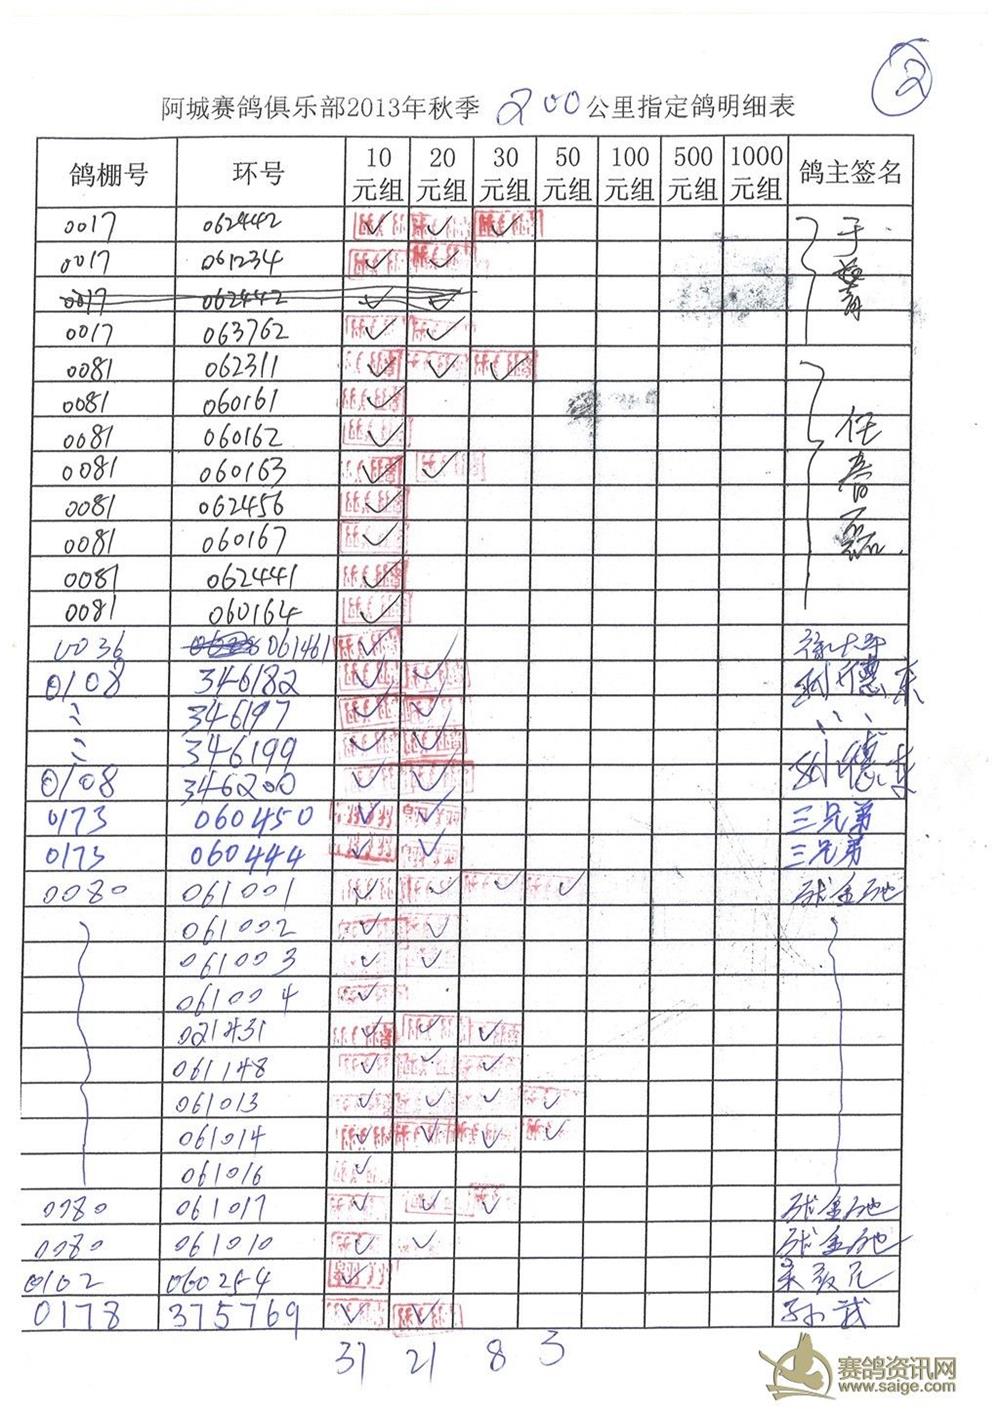 2
阿城赛鸽俱乐部2013年秋季 200公里指定鸽明细表
鸽棚号 环号 10元组 20元组 30元组 50元组 100元组 500元组 1000元组 鸽主签名
0017 062442 ✓ ✓ ✓ 于
0017 061234 ✓ ✓
0017 062442 ✓ ✓
0017 063762 ✓ ✓
0081 062311 ✓ ✓ ✓
0081 060161 ✓
0081 060162 ✓ 任
0081 060163 ✓ ✓
0081 062456 ✓
0081 060167 ✓
0081 062441 ✓
0081 060164 ✓
0036 061461 ✓
0108 346182 ✓ ✓
〃 346197 ✓ ✓
〃 346199 ✓ ✓
0108 346200 ✓ ✓
0173 060450 ✓ ✓ 三兄弟
0173 060444 ✓ ✓ 三兄弟
0080 061001 ✓ ✓ ✓ ✓
061002 ✓ ✓
061003 ✓ ✓
061004 ✓
021431 ✓ ✓ ✓
061148 ✓ ✓ ✓
061013 ✓ ✓ ✓ ✓
061014 ✓ ✓ ✓ ✓
061016 ✓
0080 061017 ✓ ✓ ✓
0080 061010 ✓ ✓
0102 060254 ✓
0178 375769 ✓ ✓ 孙武
31 21 8 3
赛鸽资讯网
www.saige.com